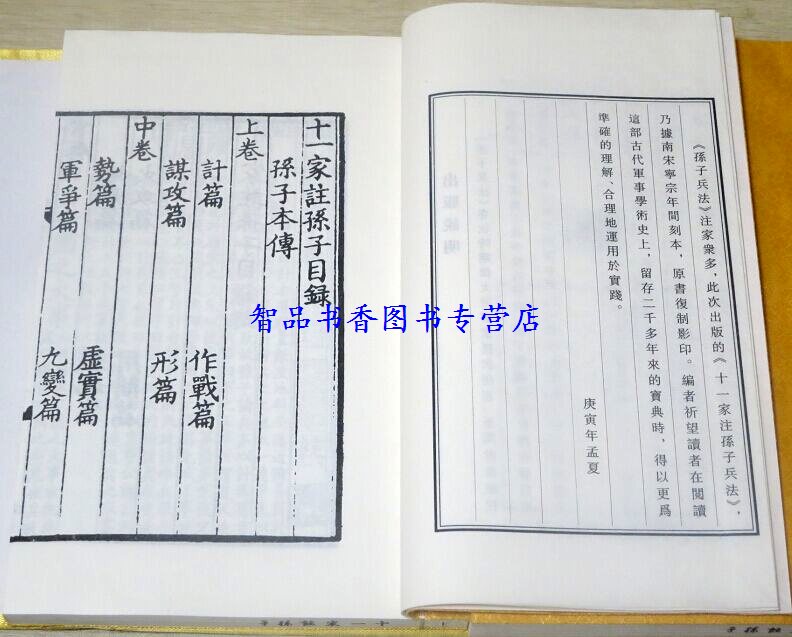 《孫子兵法》注家衆多，此次出版的《十一家注孫子兵法》，
乃據南宋寧宗年間刻本，原書復制影印。編者祈望讀者在閱讀
這部古代軍事學術史上，留存二千多年來的寶典時，得以更爲
準確的理解、合理地運用於實踐。
庚寅年孟夏
十一家註孫子目録
孫子本傳
上卷
計篇 作戰篇
謀攻篇 形篇
中卷
勢篇 虛實篇
軍爭篇 九變篇
智品书香图书专营店